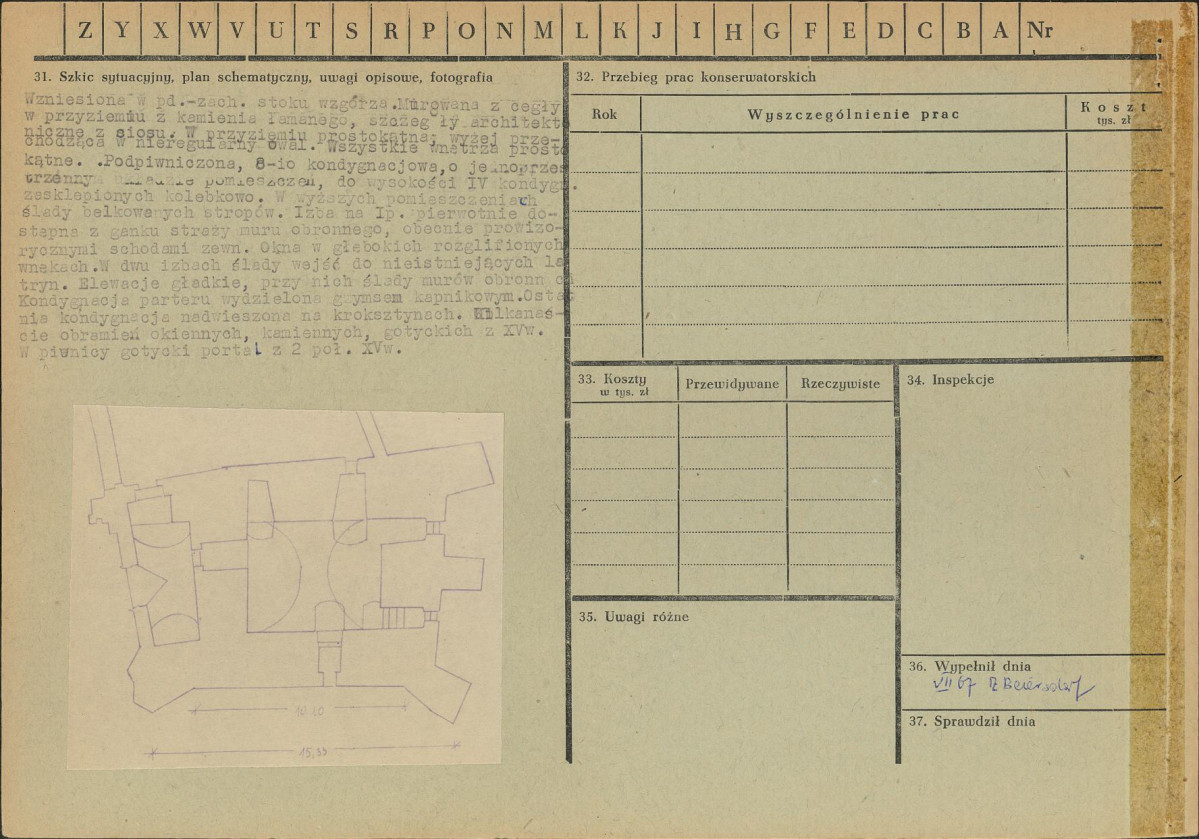 Z Y X W V U T S R P O N M L K J I H G F E D C B A Nr
31. Szkic sytuacyjny, plan schematyczny, uwagi opisowe, fotografia
Wzniesiona w pd.-zach. stoku wzgórza.Murowana z cegły
w przyziemiu z kamienia łamanego, szczeg ły architekt
niczne z ciosu. W przyziemiu prostokątna; wyżej prze-
chodząca w nieregularny owal. Wszystkie wnętrza prosto
kątne. .Podpiwniczona, 8-io kondygnacjowa,o je noprzes
trzennym układzie pomieszczeń, do wysokości IV kondygn.
zasklepionych kolebkowo. W wyższych pomieszczeniach
ślady belkowanych stropów. Izba na Ip. pierwotnie do-
stępna z ganku straży muru obronnego, obecnie prowizo-
rycznymi schodami zewn. Okna w głębokich rozglifionych
wnękach.W dwu izbach ślady wejść do nieistniejących la
tryn. Elewacje gładkie, przy nich ślady murów obronn ch
Kondygnacja parteru wydzielona gzymsem kapnikowym.Ostat
nia kondygnacja nadwieszona na kroksztynach. Kilkanaś-
cie obramień okiennych, kamiennych, gotyckich z XVw.
W piwnicy gotycki portal z 2 poł. XVw.
10.20
15,33
32. Przebieg prac konserwatorskich
Rok Wyszczególnienie prac Koszt
tys. zł
33. Koszty
w tys. zł
Przewidywane Rzeczywiste
34. Inspekcje
35. Uwagi różne
36. Wypełnił dnia
VII 67 Beiersdorf
37. Sprawdził dnia